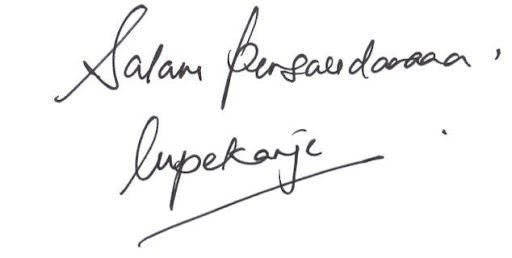 Salam Persaudaraaa,
lupekanje